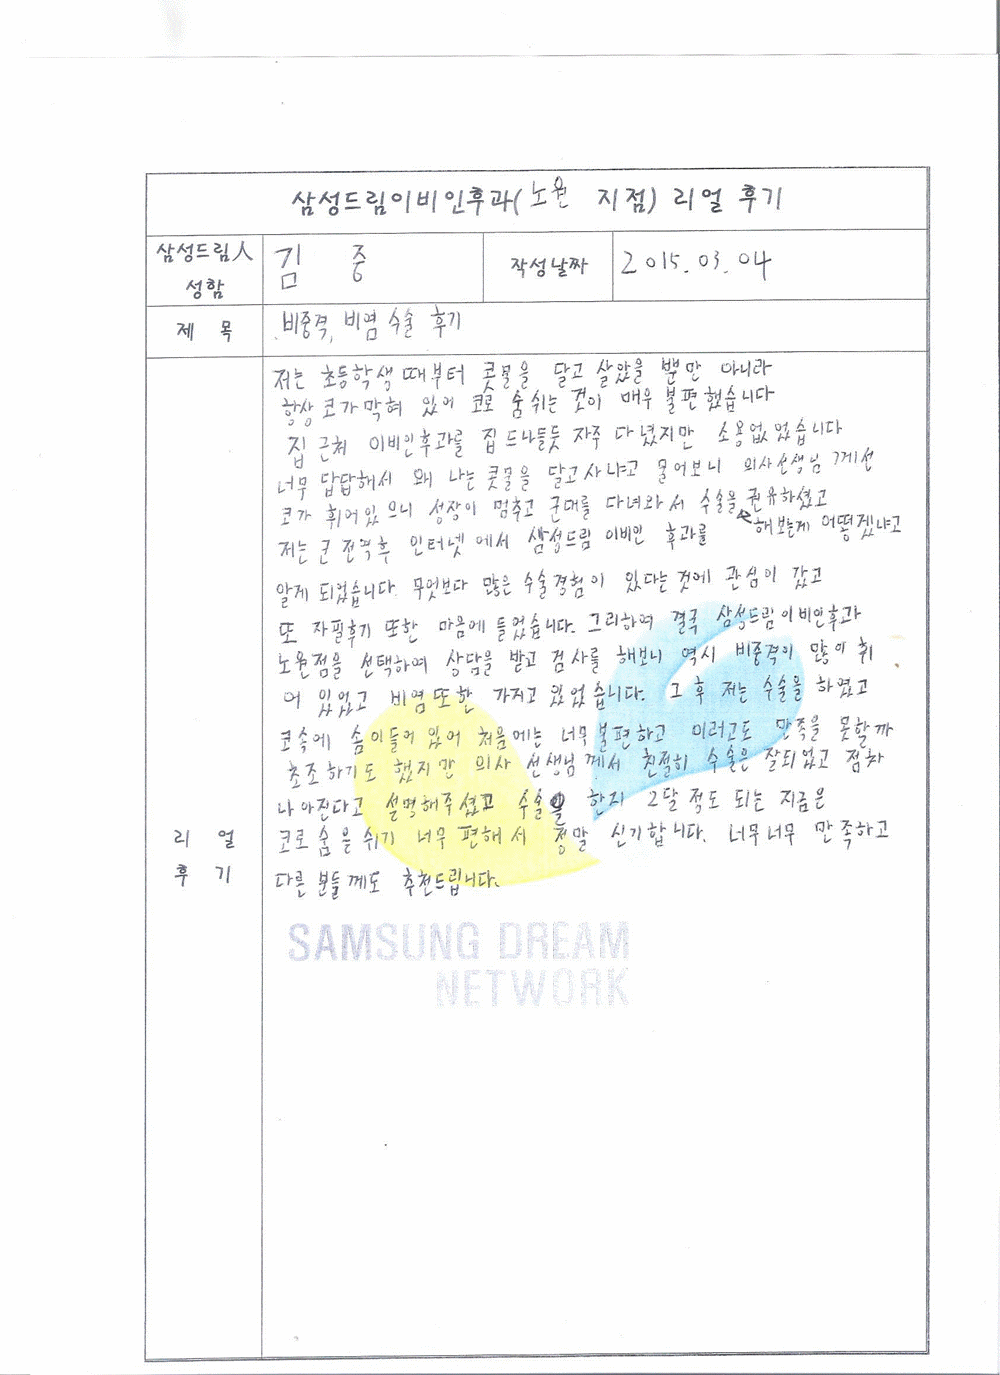 삼성드림이비인후과(노원 지점) 리얼 후기
삼성드림人 성함
김 중
작성날짜
2015.03.04
제 목
비중격, 비염 수술 후기
리 얼 후 기
저는 초등학생 때부터 콧물을 달고 살았을 뿐만 아니라
항상 코가 막혀 있어 코로 숨쉬는 것이 매우 불편했습니다
집 근처 이비인후과를 집 드나들듯 자주 다녔지만 소용없었습니다
너무 답답해서 왜 나는 콧물을 달고사냐고 물어보니 의사선생님 께선
코가 휘어있으니 성장이 멈추고 군대를 다녀와서 수술을 권유하셨고
해보는게 어떻겠냐고
저는 군 전역후 인터넷에서 삼성드림 이비인 후과를
알게 되었습니다. 무엇보다 많은 수술경험이 있다는 것에 관심이 갔고
또 자필후기 또한 마음에 들었습니다. 그리하여 결국 삼성드림이비인후과
노원점을 선택하여 상담을 받고 검사를 해보니 역시 비중격이 많이 휘
어 있었고 비염또한 가지고 있었습니다. 그 후 저는 수술을 하였고
코속에 솜이들어 있어 처음에는 너무불편하고 이러고도 만족을 못할까
초조하기도 했지만 의사 선생님께서 친절히 수술은 잘되었고 점차
나아진다고 설명해주셨고 수술을 한지 2달 정도 되는 지금은
코로 숨을 쉬기 너무 편해서 정말 신기합니다. 너무너무 만족하고
다른 분들께도 추천드립니다.
SAMSUNG DREAM
NETWORK